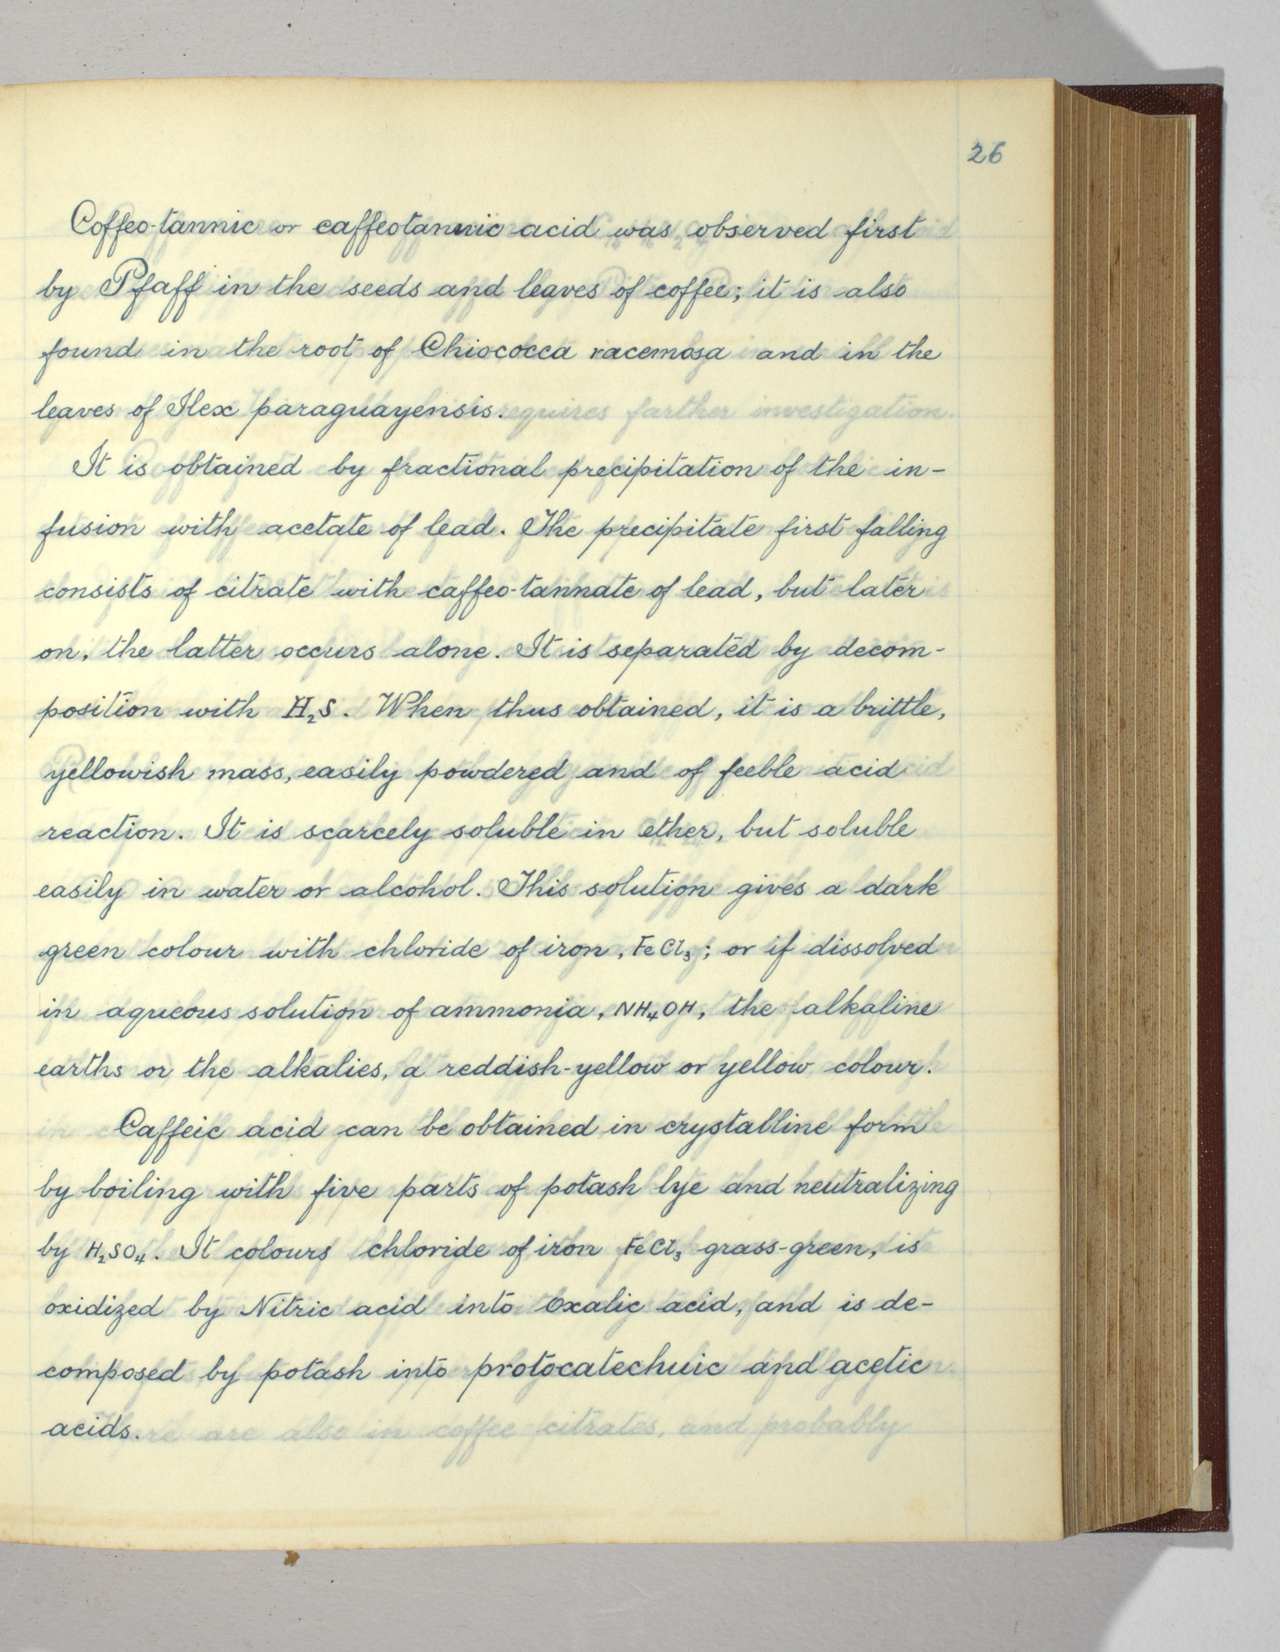 26
Coffeo-tannic or caffeotannic acid was observed first
by Pfaff in the seeds and leaves of coffee; it is also
found in the root of Chiococca racemosa and in the
leaves of Ilex paraguayensis.
It is obtained by fractional precipitation of the in-
fusion with acetate of lead. The precipitate first falling
consists of citrate with caffeo-tannate of lead, but later
on, the latter occurs alone. It is separated by decom-
position with H₂S. When thus obtained, it is a brittle,
yellowish mass, easily powdered and of feeble acid
reaction. It is scarcely soluble in ether, but soluble
easily in water or alcohol. This solution gives a dark
green colour with chloride of iron, FeCl₃; or if dissolved
in aqueous solution of ammonia, NH₄OH, the alkaline
earths or the alkalies, a reddish-yellow or yellow colour.
Caffeic acid can be obtained in crystalline form
by boiling with five parts of potash lye and neutralizing
by H₂SO₄. It colours chloride of iron FeCl₃ grass-green, is
oxidized by Nitric acid into Oxalic acid, and is de-
composed by potash into protocatechuic and acetic
acids.